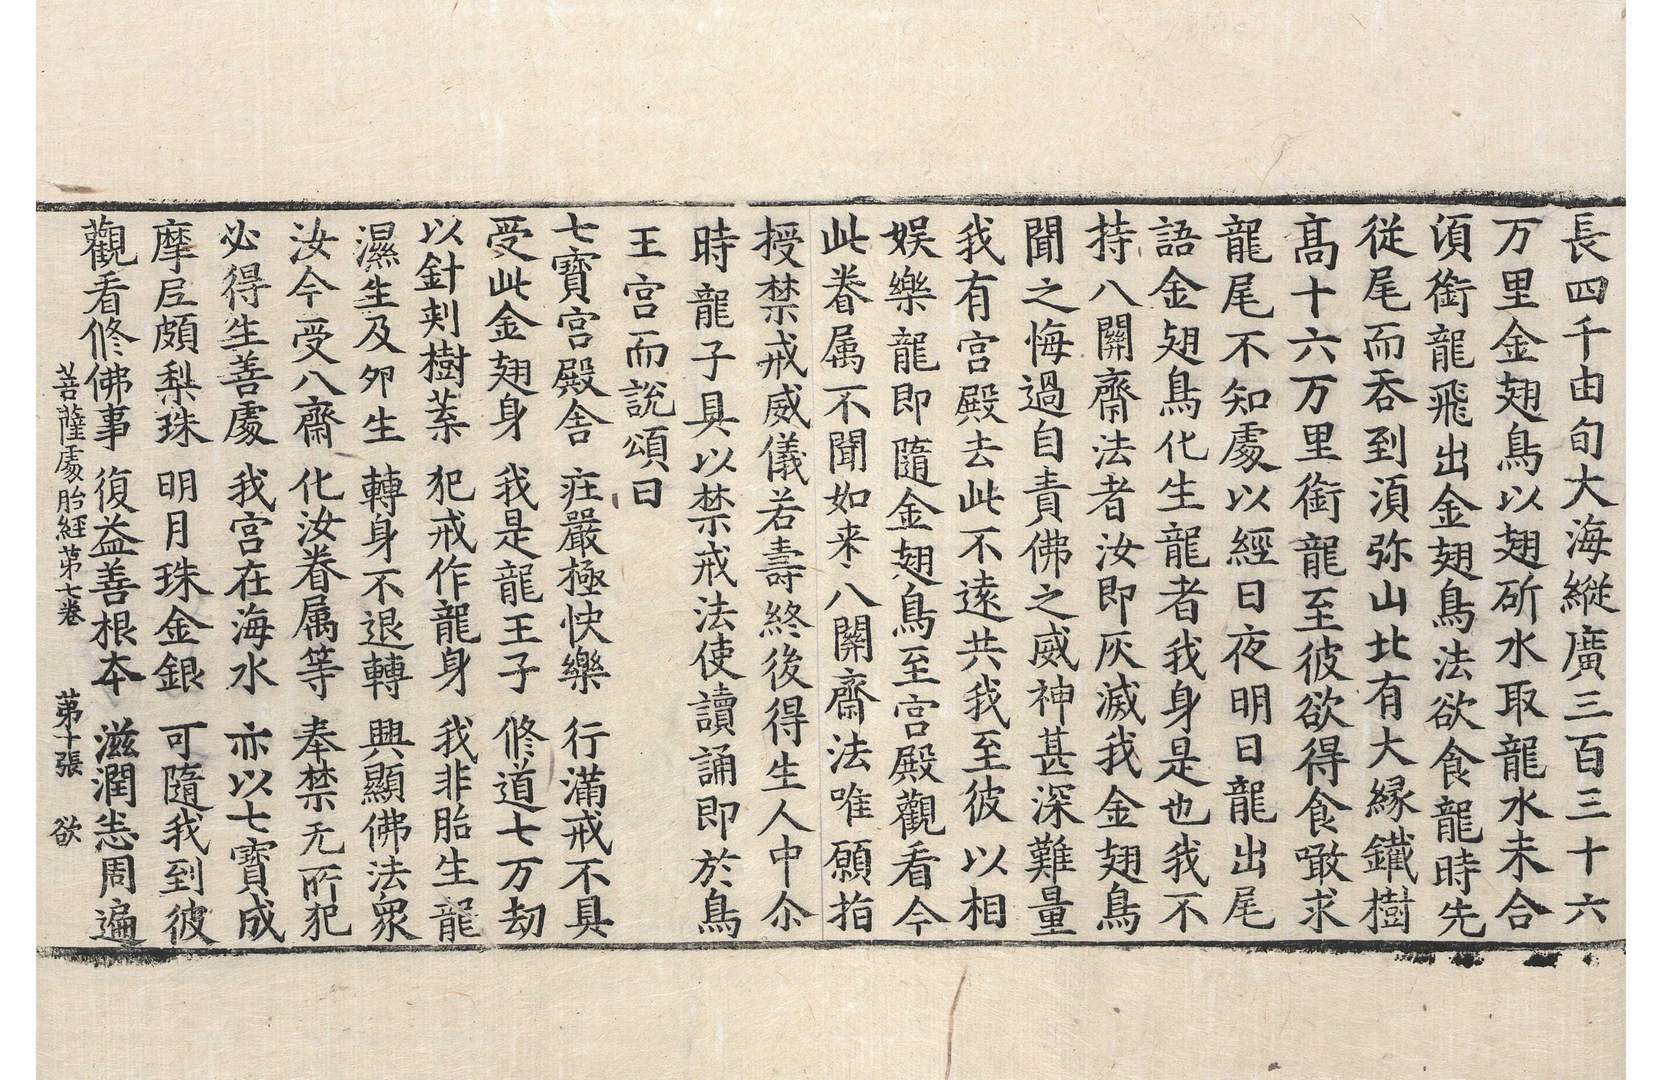 長四千由旬大海縱廣三百三十六
万里金翅鳥以翅斫水取龍水未合
湏銜龍飛出金翅鳥法欲食龍時先
從尾而吞到湏弥山北有大緣鐵樹
髙十六万里銜龍至彼欲得食噉求
龍尾不知處以經日夜明日龍出尾
語金翅鳥化生龍者我身是也我不
持八關齋法者汝即灰滅我金翅鳥
聞之悔過自責佛之威神甚深難量
我有宫殿去此不遠共我至彼以相
娱樂龍即隨金翅鳥至宫殿觀看今
此眷属不聞如来八關齋法唯願指
授禁戒威儀若壽終後得生人中尒
時龍子具以禁戒法使讀誦即於鳥
王宫而說頌曰
七寶宫殿舍 㽵嚴極快樂 行滿戒不具
受此金翅身 我是龍王子 修道七万劫
以針刾樹葉 犯戒作龍身 我非胎生龍
濕生及卵生 轉身不退轉 興顯佛法衆
汝今受八齋 化汝眷属等 奉禁无所犯
必得生善處 我宫在海水 亦以七寶成
摩尼頗梨珠 明月珠金銀 可隨我到彼
觀看修佛事 復益善根本 滋潤悉周遍
菩薩處胎經苐七卷 苐十張 欲